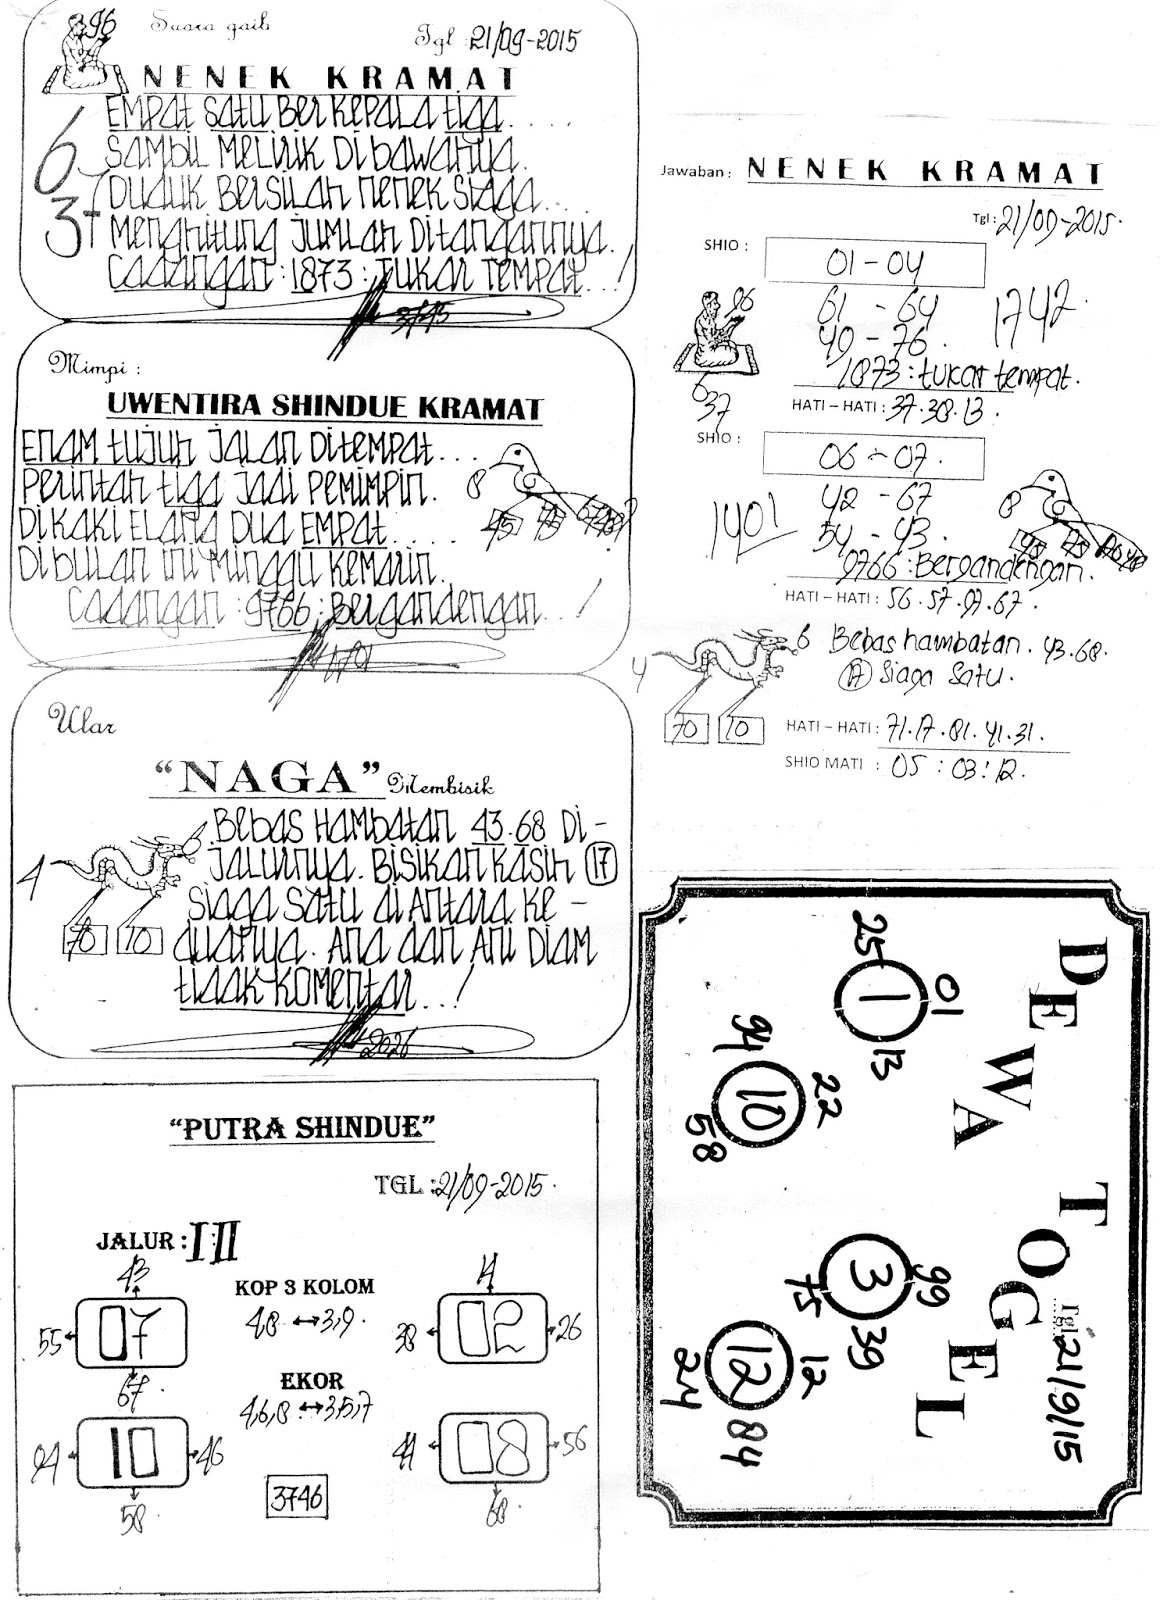 96
Suara gaib
Tgl : 21/09-2015
NENEK KRAMAT
EMPAt SAtU BerKePALA tiga.....
SAMBIL MeLiriK DibAWAHNya.
DUDUK BERSILAH NeNeK SiAgA....
MengHitung JUMLAH DitangAnnya.
CADANGAN : 1873 : TUKAR TEMPAt...!
6
37
Mimpi :
UWENTIRA SHINDUE KRAMAT
ENAM tUJUH JALAN DitEMPAt...
PerintAH tiga JADi PEMIMPIN.
DiKAKi ELANG DUA EMPAt.....
DiBULAN ini Minggu KEMARIN.
CADANGAN : 9766 : BergandengAn...!
8
Ular
"NAGA" Membisik
BEBAS HAMBATAN 43.68 Di-
JALURnya. BiSiKAN KASIH 17
SIAGA SAtU di ANtARA Ke-
duanya. ANA dan ANi DiAM
tidAK KOMENtAr...!
2026
4
70 10
"PUTRA SHINDUE"
TGL : 21/09-2015.
JALUR : I-II
43
55 07
67
KOP 3 KOLOM
48 ↔ 3,9.
11
38 02 26
EKOR
4,6,8 ↔ 3,5,7
94 10 46
58.
44 08 56
68.
3746
Jawaban : NENEK KRAMAT
Tgl : 21/09-2015.
SHIO :
01 - 04
61 - 64
49 - 76
1742.
1873 : tukar tempat.
HATI – HATI : 37.38.13.
96
6
37
SHIO :
06 - 07.
42 - 67
54 - 43.
1401
9766 : Bergandengan.
HATI – HATI : 56.57.97.67.
8
6 Bebas hambatan. 43.68.
17 Siaga satu.
4
70 10
HATI – HATI : 71.17.81.41.31.
SHIO MATI : 05 : 03 : 12.
DEWA TOGEL
Tgl 21/9/15
25 1 01
13
94 10 22
58
75 3 99
39
24 12 12
84